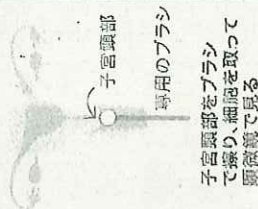 子宮頸部
専用のブラシ
子宮頸部をブラシ
で擦り、細胞を取って
顕微鏡で見る